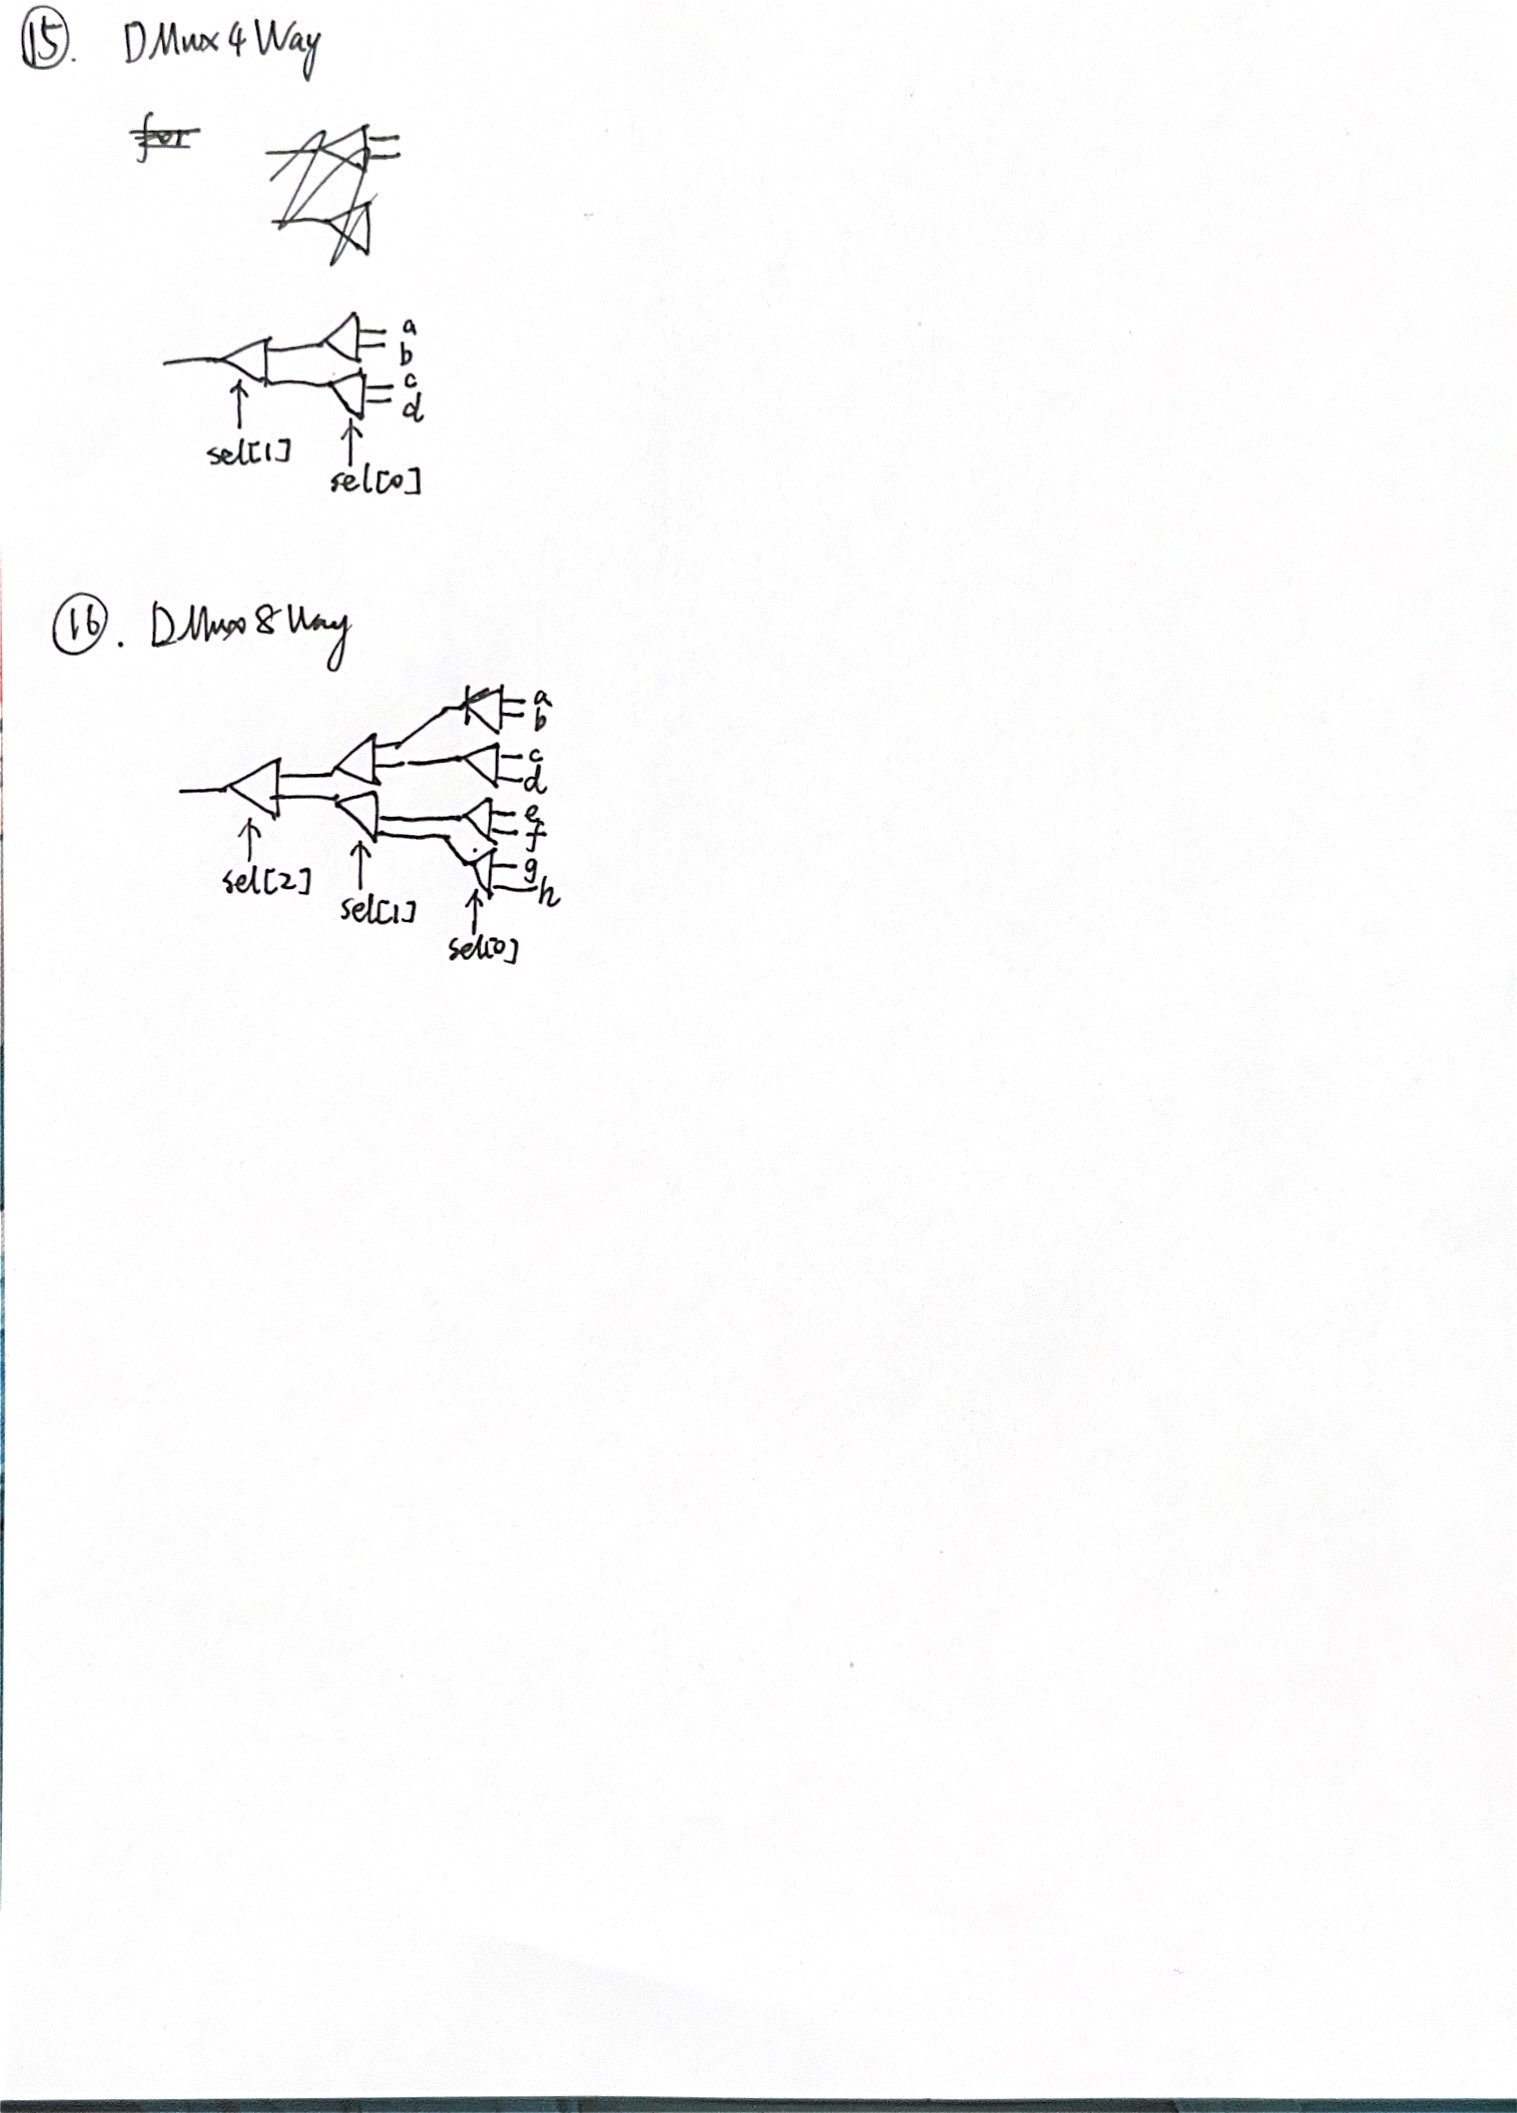 15. DMux4Way
for
a
b
c
d
sel[1]
sel[0]
16. DMux8Way
a
b
c
d
e
f
g
h
sel[2]
sel[1]
sel[0]